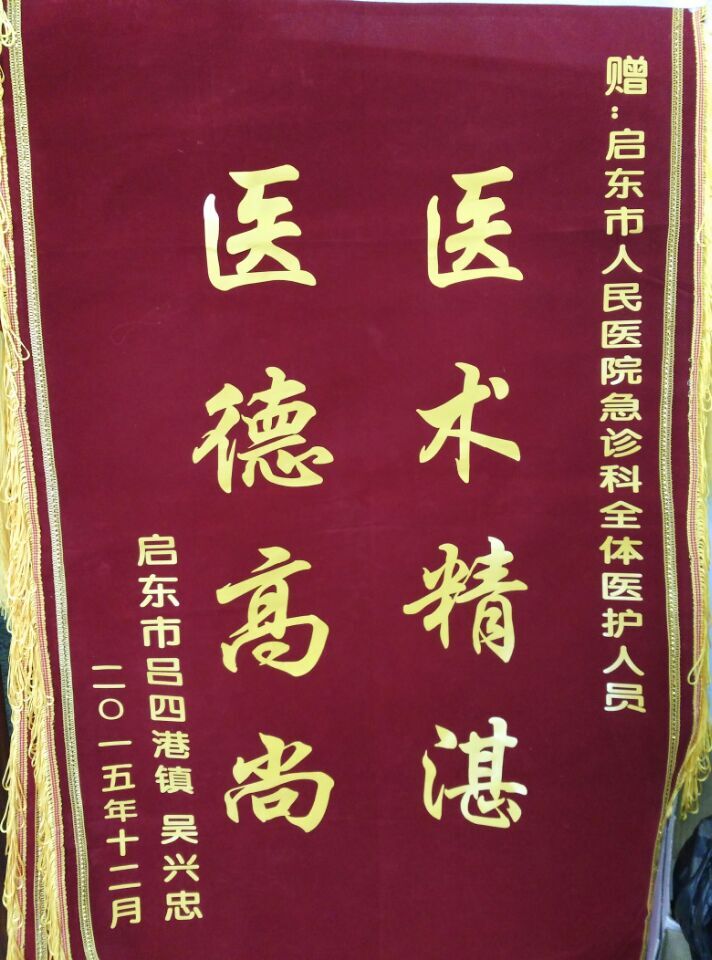 赠:启东市人民医院急诊科全体医护人员
医术精湛
医德高尚
启东市吕四港镇 吴兴忠
二〇一五年十二月